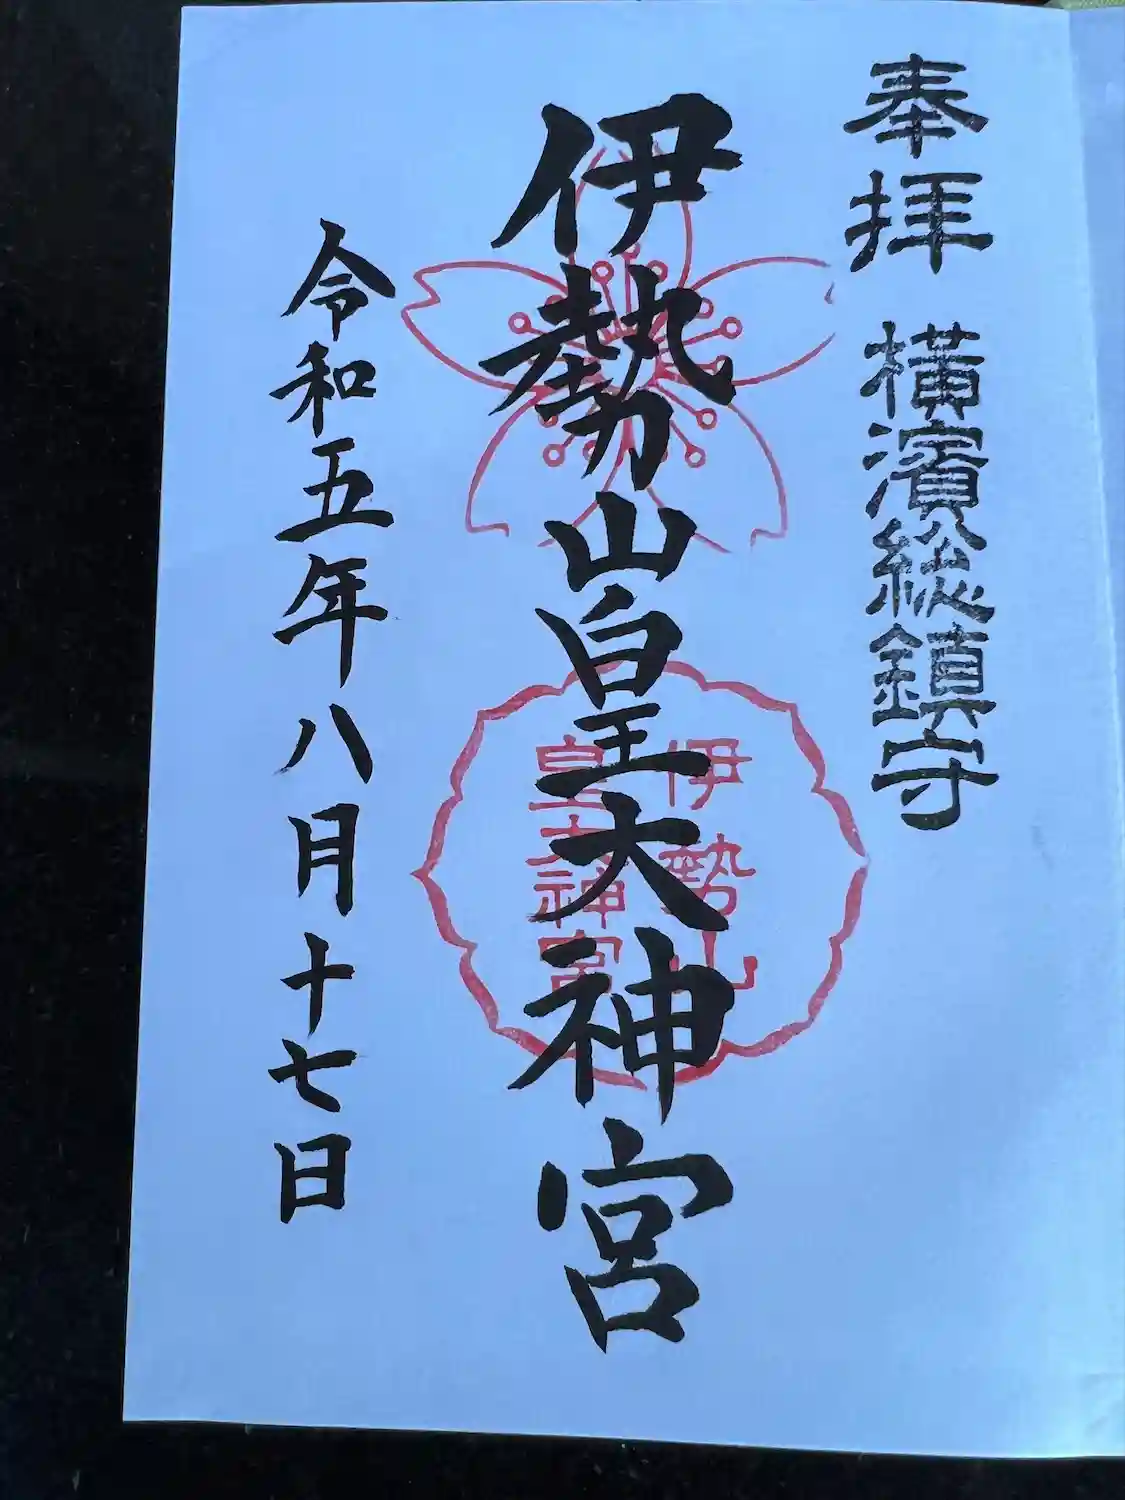 奉拝 横濱総鎮守
伊勢山皇大神宮
伊勢山
皇大神宮
令和五年八月十七日